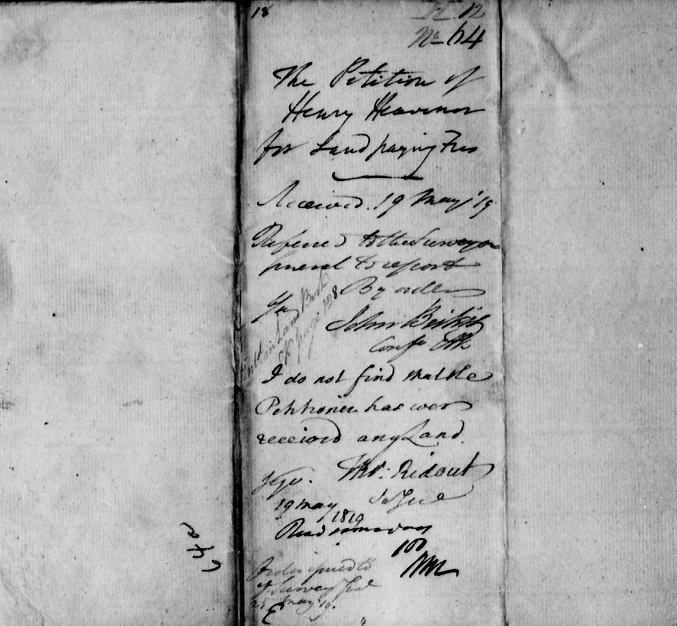 18
No 64
The Petition of
Henry Heavenor
for Land paying Fees
Received 19 May '19
Referred to the Surveyor
General to report
By order
John Beikie
I do not find that the
Petitioner has ever
received any Land.
Thos: Ridout
19 May 1819
Read same day
100
Order issued to
25 May '19.
64a